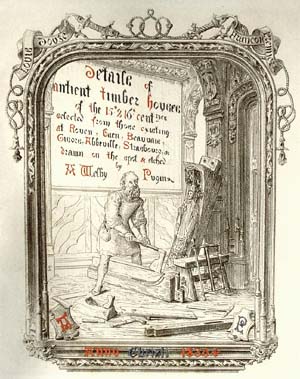 Louis Douze
Details of
antient timber houses
of the 15th & 16th
selected from those existing
at Rouen, Caen, Beauvais,
Gisors, Abbeville, Strasbourg,
drawn on the spot & etched
by
A Welby Pugin
A P
Anno